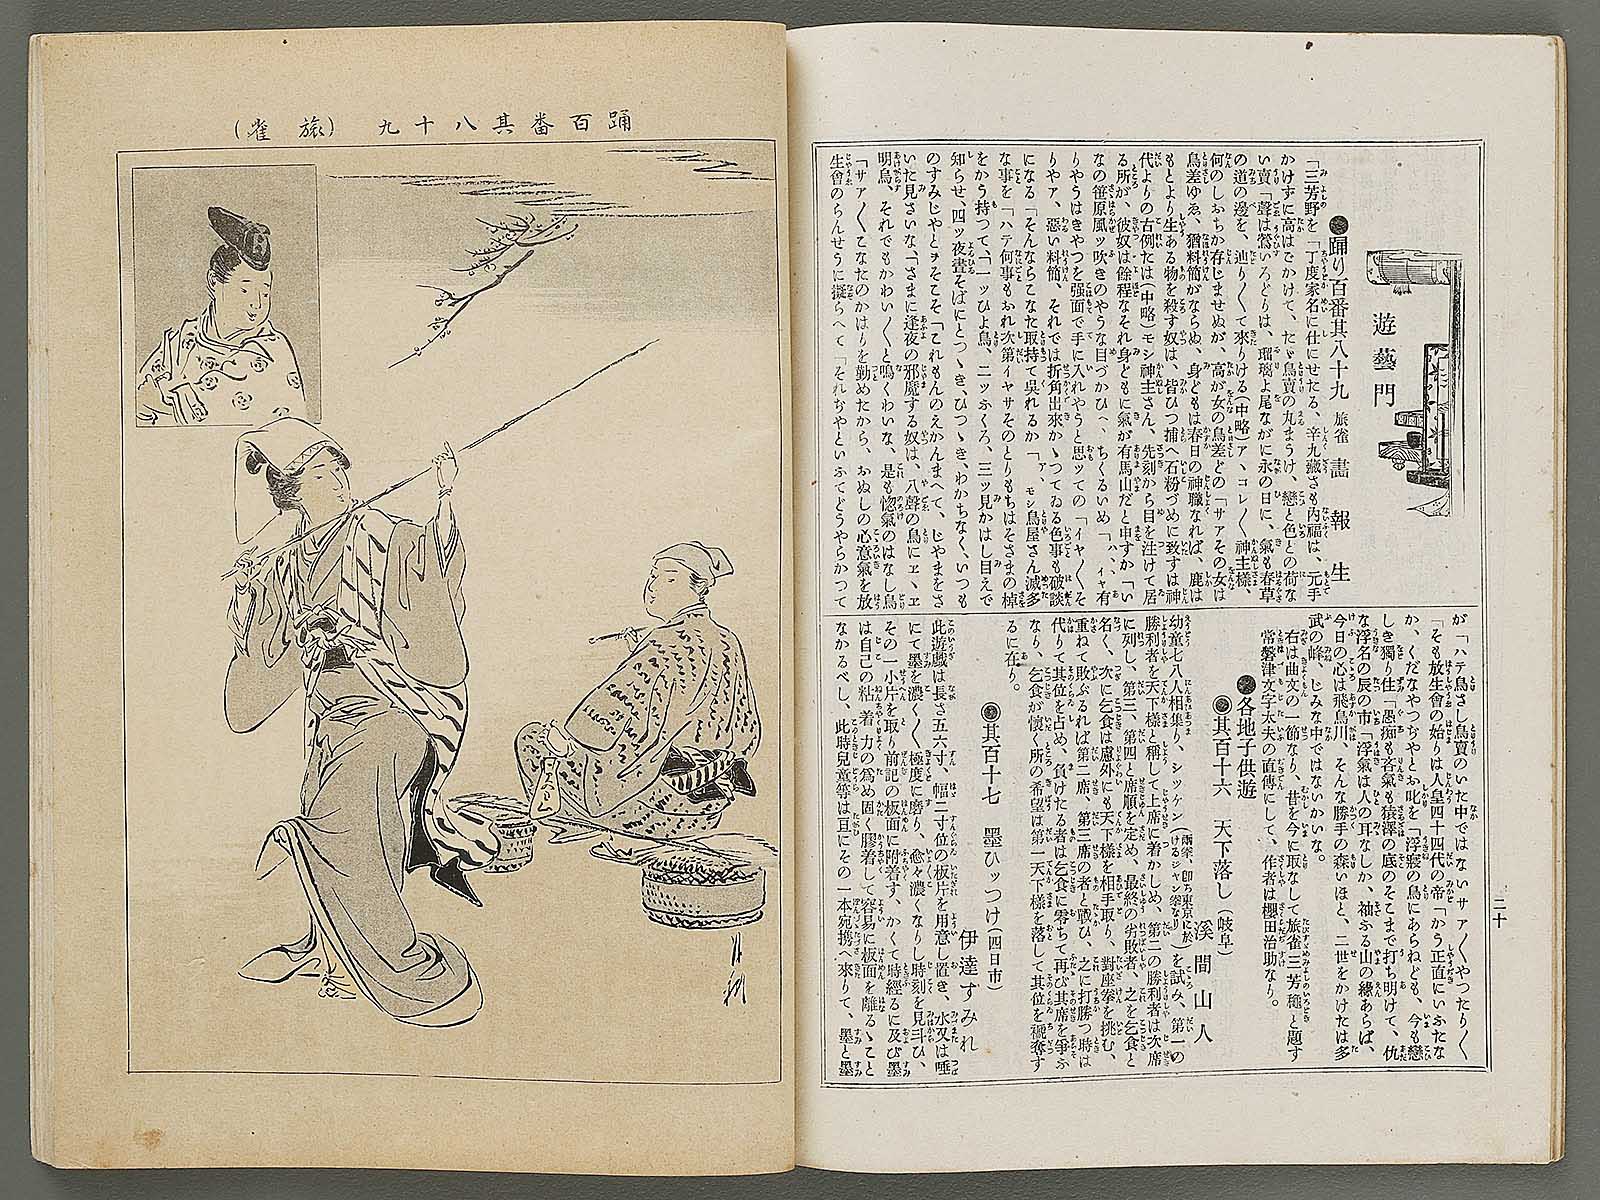 二十
遊藝門
●踊り百番其八十九 旅雀 畵報生
「三芳野を「丁度家名に仕にせたる、辛九藏さも内福は、元手
かけずに高はでかけて、たゞ鳥賣の丸まうけ、戀と色との荷な
い賣「聲は鶯いろどりは、瑠璃よ尾ながに永の日に、氣も春草
の道の邊を、辿り〳〵て來りける(中略)アヽコレ〳〵、神主樣、
何のしおちか存じませぬが、高が女の鳥差との「サアその女は
鳥差ゆゑ、猶料簡がならぬ、身どもは春日の神職なれば、鹿は
もとより生ある物を殺す奴は、皆ひつ捕へ石粉づめに致すは神
代よりの古例たは(中略)モシ神主さん、先刻から目を注けて居
る所が、彼奴は餘程なそれ身どもに氣が有馬山だと申すか「い
なの笹原風ッ吹きのやうな目づかひ、ちくるいめ「ハヽイヤ有
りやうはきやつを强面で手に入れやうと思ッての「イヤ〳〵そ
りやア、惡い料簡、それでは折角出來かゝつてゐる色事も破談
になる「そんならこなた取持て吳れるか「ア、モシ鳥屋さん滅多
な事を「ハテ何事もおれ次第イヤサそのとりもちはそさまの棹
をかう持つて、「一ッひよ鳥、二ッふくろ、三ッ見かはし目えで
知らせ、四ッ夜晝そばにとつゝき、ひつゝき、わかちなく、いつも
のすみじやとヲそこそ「これもんのえかんまへて、じやまをさ
いた見さいな「さまに逢夜の邪魔する奴は、八聲の鳥にエヽエ
明烏、それでもかわい〳〵と鳴くわいな、是も惚氣のはなし鳥
「サア〳〵こなたのかはりを勤めたから、おぬしの心意氣を放
生會のらんせうに擬らへて「それぢやといふてどうやらかつて
が「ハテ鳥さし鳥賣のいた中ではないサア〳〵やつたり〳〵
「そも放生會の始りは人皇四十四代の帝「かう正直にいふたな
か、くだなやつぢやとお叱を「浮寢の鳥にあらねども、今も戀
しき獨り住「愚痴も吝氣も猿澤の底のそこまで打ち明けて、仇
な浮名の辰の市「浮氣は人の耳なしか、袖ふる山の緣あらば、
今日の心は飛鳥川、そんな勝手の森いほと、二世をかけたは多
武の峰、じみな中ではないかいな。
右は曲文の一節なり、昔を今に取なして旅雀三芳穐と題す
常磐津文字太夫の直傳にして、作者は櫻田治助なり。
●各地子供遊
●其百十六 天下落し(岐阜)
溪間山人
幼童七八人相集り、シッケン(兩拳、卽ち東京に於けるジャン拳なり)を試み、第一の
勝利者を天下樣と稱して上席に着かしめ、第二の勝利者は次席
に列し、第三、第四と席順を定め、最終の劣敗者、之を乞食と
名く、次に乞食は慮外にも天下樣を相手取り、對座拳を挑む、
重ねて敗ぶるれば第二席、第三席の者と戰ひ、之に打勝つ時は
代りて其位を占め、負けたる者は乞食に零ちて再び其席を爭ふ
なり、乞食が懷く所の希望は第一天下樣を落して其位を褫奪す
るに在り。
●其百十七 墨ひッつけ(四日市)
伊達すみれ
此遊戲は長さ五六寸、幅二寸位の板片を用意し置き、水又は唾
にて墨を濃く〳〵極度に磨り、愈々濃くなりし時刻を見斗ひ、
その一小片を取り前記の板面に附着す、かくて時經るに及び墨
は自己の粘着力の爲め固く膠着して容易に板面を離るゝこと
なかるべし、此時兒童等は互にその一本宛携へ來りて、墨と墨
踊百番其八十九(旅雀)